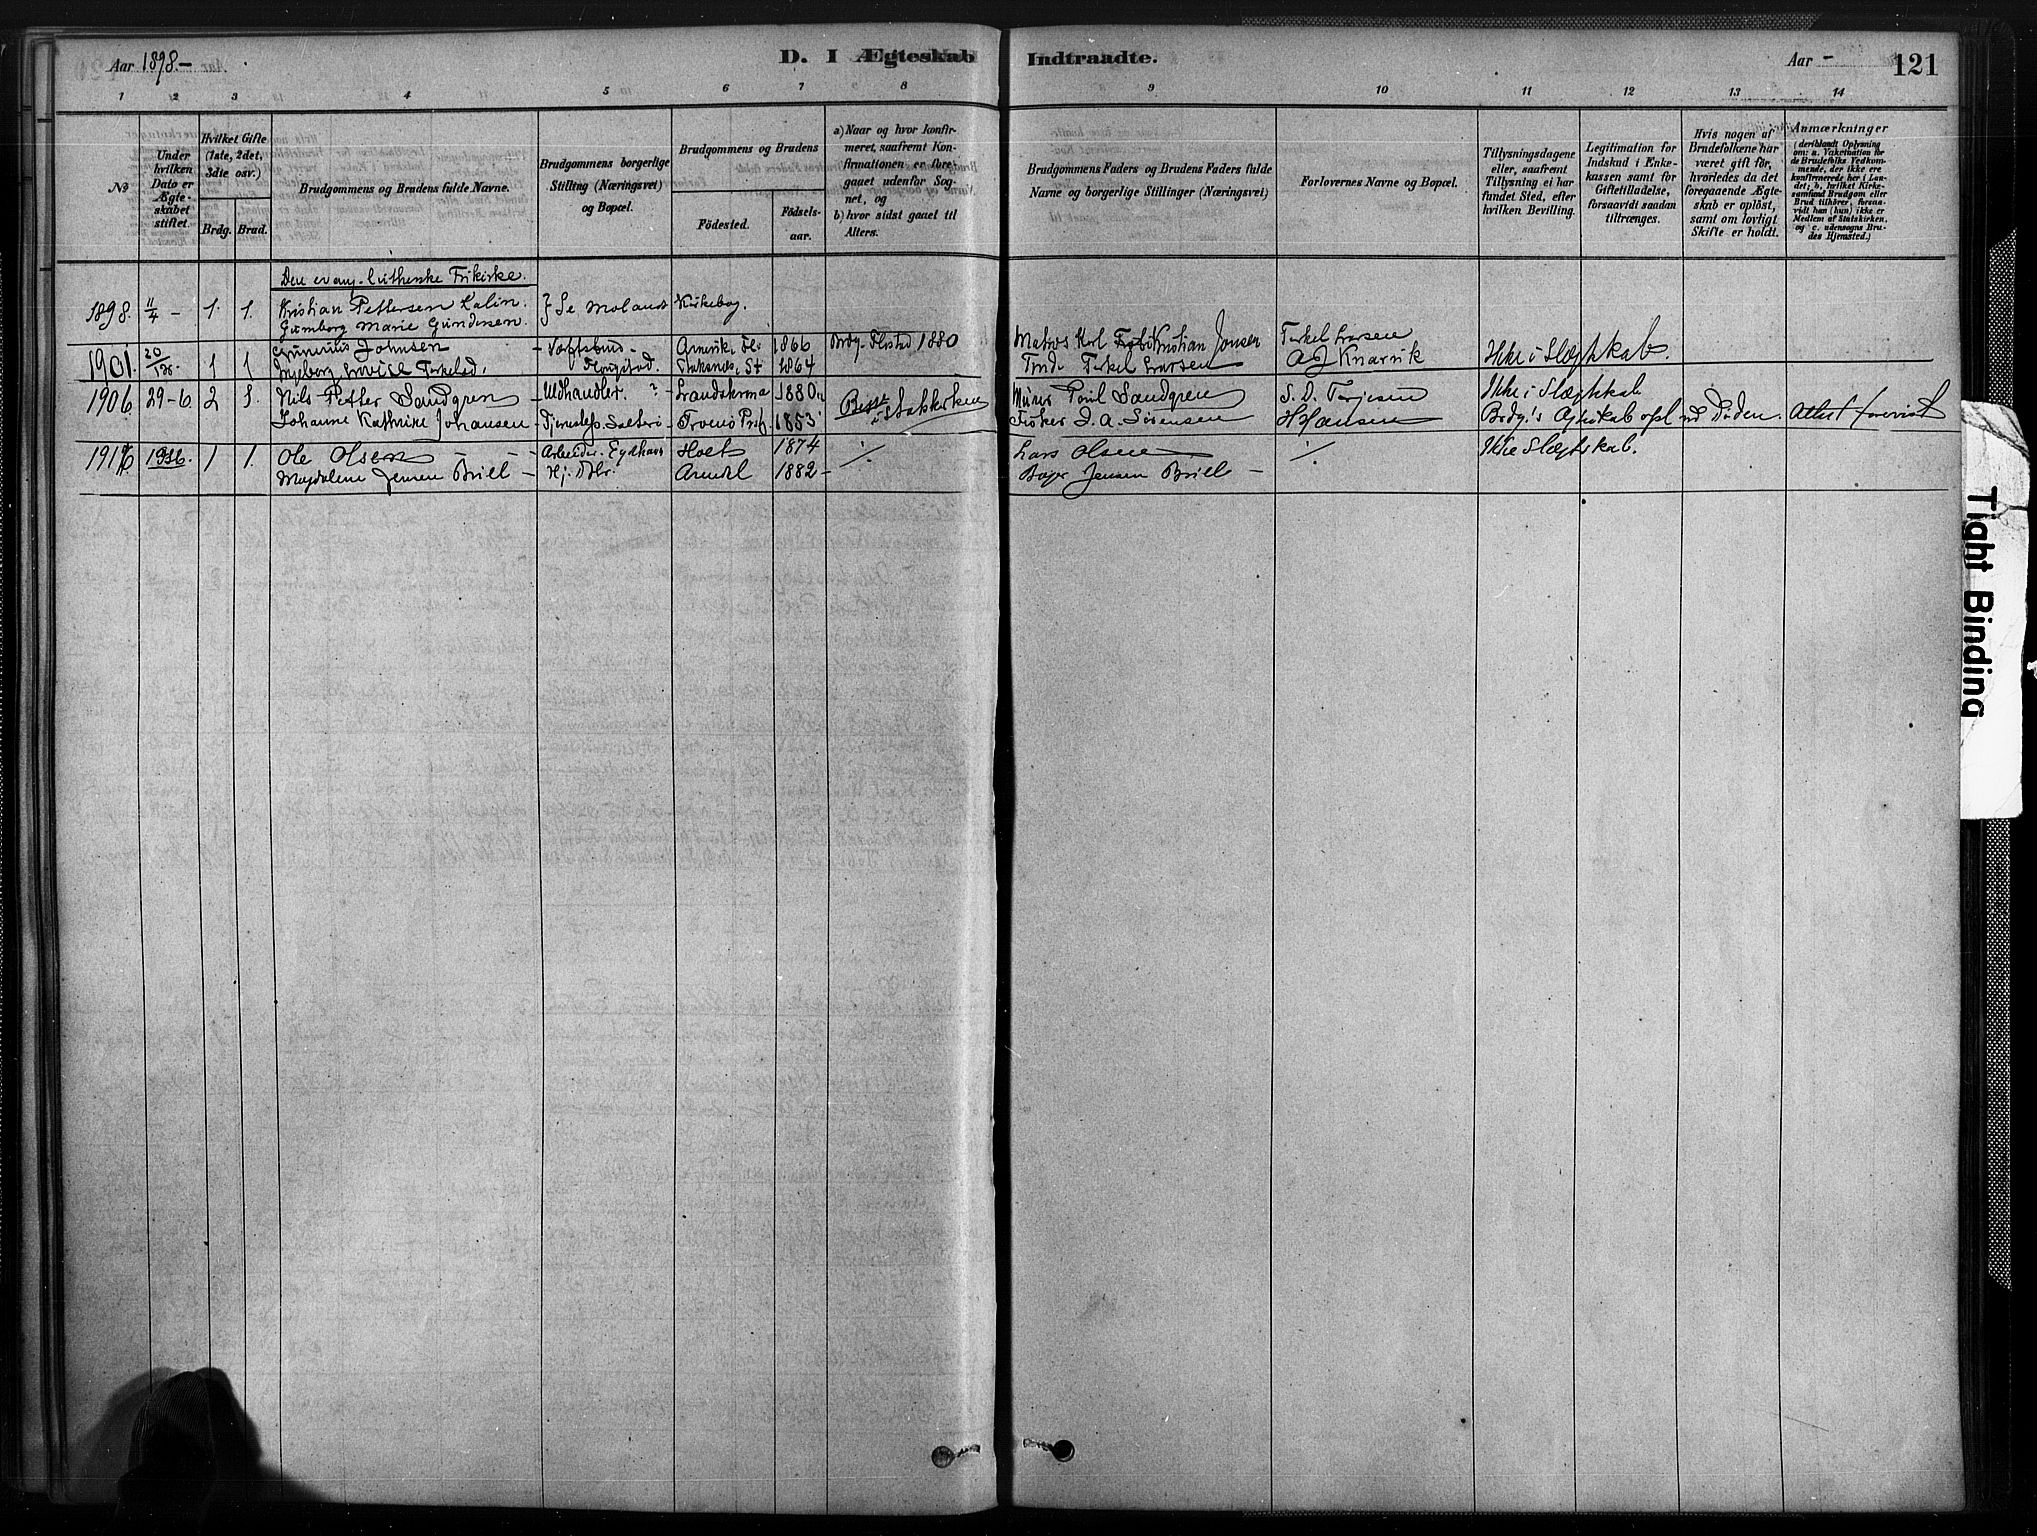 Aar 1898.–
D. I Ægteskab Indtraadte.
Aar –
121
1 2 3 4 5 6 7 8 9 10 11 12 13 14
№
Under hvilken Dato er Ægteskabet stiftet.
Hvilket Gifte (1ste, 2det, 3die osv.)
Brdg.
Brud.
Brudgommens og Brudens fulde Navne.
Brudgommens borgerlige Stilling (Næringsvei) og Bopæl.
Brudgommens og Brudens
Fødested.
Fødsels-aar.
a) Naar og hvor konfirmeret, saafremt Konfirmationen er foregaaet udenfor Sognet, og
b) hvor sidst gaaet til Alters.
Brudgommens Faders og Brudens Faders fulde Navne og borgerlige Stillinger (Næringsvei)
Forlovernes Navne og Bopæl.
Tillysningsdagene eller, saafremt Tillysning ei har fundet Sted, efter hvilken Bevilling.
Legitimation for Indskud i Enkekassen samt for Giftetilladelse, forsaavidt saadan tiltrænges.
Hvis nogen af Brudefolkene har været gift før, hvorledes da det foregaaende Ægteskab er opløst, samt om lovligt Skifte er holdt.
Anmærkninger (deriblandt Oplysning om: a. Vakcination for de Brudefolks Vedkommende, der ikke ere konfirmerede her i Landet; b. hvilket Kirkesamfund Brudgom eller Brud tilhører, forsaavidt han (hun) ikke er Medlem af Statskirken, og c. udensogns Brudes Hjemsted.)
Den evang. lutherske Frikirke.
1898. 11/4 – 1. 1. Kristian Pettersen Kalin. } Se Molands Kirkebog.
Gunborg Marie Gundersen.
1901. 20/ 1 1 Johnsen 1866 Brdg. 1880 Matros Karl Kristian Jonsen Terkel Larsen
Ingeborg Lovise Terkelsd. 1864 Terkel Larsen Knarvik Ikke i Slægtskab.
1906. 29-6. 2 Nils Petter Sandgren – Uldhandler ? – Landskrona 1880 Begge i Statskirken Murer Poul Sandgren S. D. Terjesen Ikke i Slægtskab.
Johanne Kathrine Johansen – Saltrø – Tromø 1853 Fisker J. A. Sørensen H Hansen Brdg's Ægteskab opl ved Døden. Attest forevist
1 1. Ole Olsen – – Arbeider. Eydehavn Holt 1874 ./. Lars Olsen ./. Ikke Slægtskab.
Magdalene Jensen Brill – Hj. Dtr. Arendal 1882 – Jensen Brill –
Tight Binding